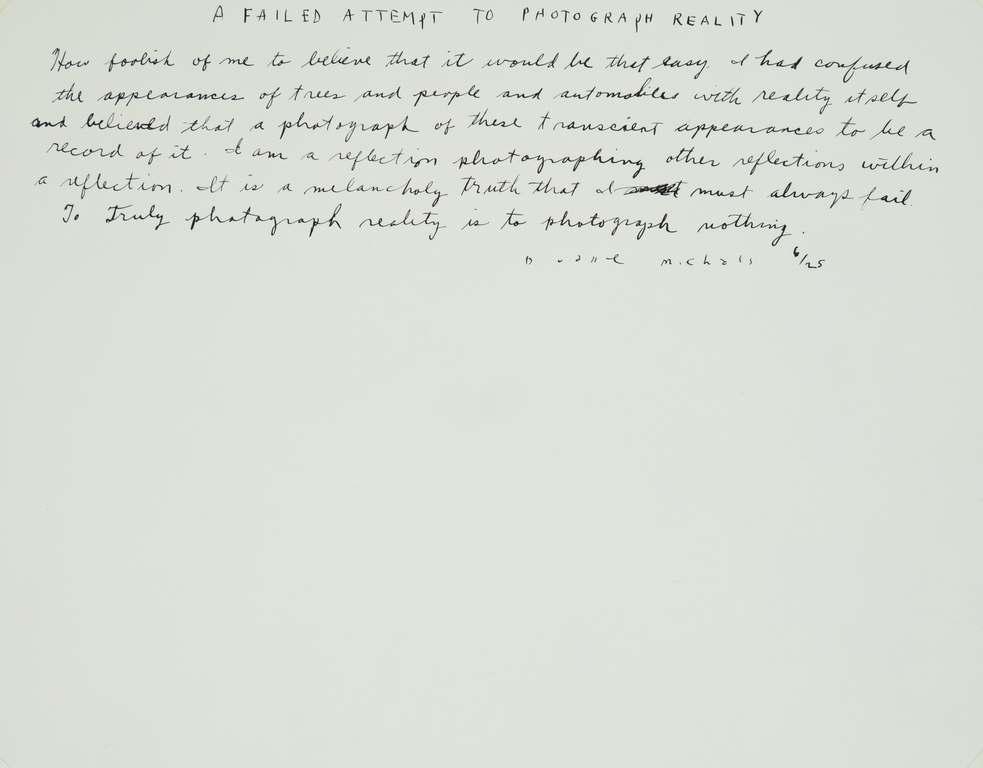 A FAILED ATTEMPT TO PHOTOGRAPH REALITY
How foolish of me to believe that it would be that easy. I had confused
the appearances of trees and people and automobiles with reality itself
and believed that a photograph of these transcient appearances to be a
record of it. I am a reflection photographing other reflections within
a reflection. It is a melancholy truth that I must always fail.
To Truly photograph reality is to photograph nothing.
Duane Michals 6/25